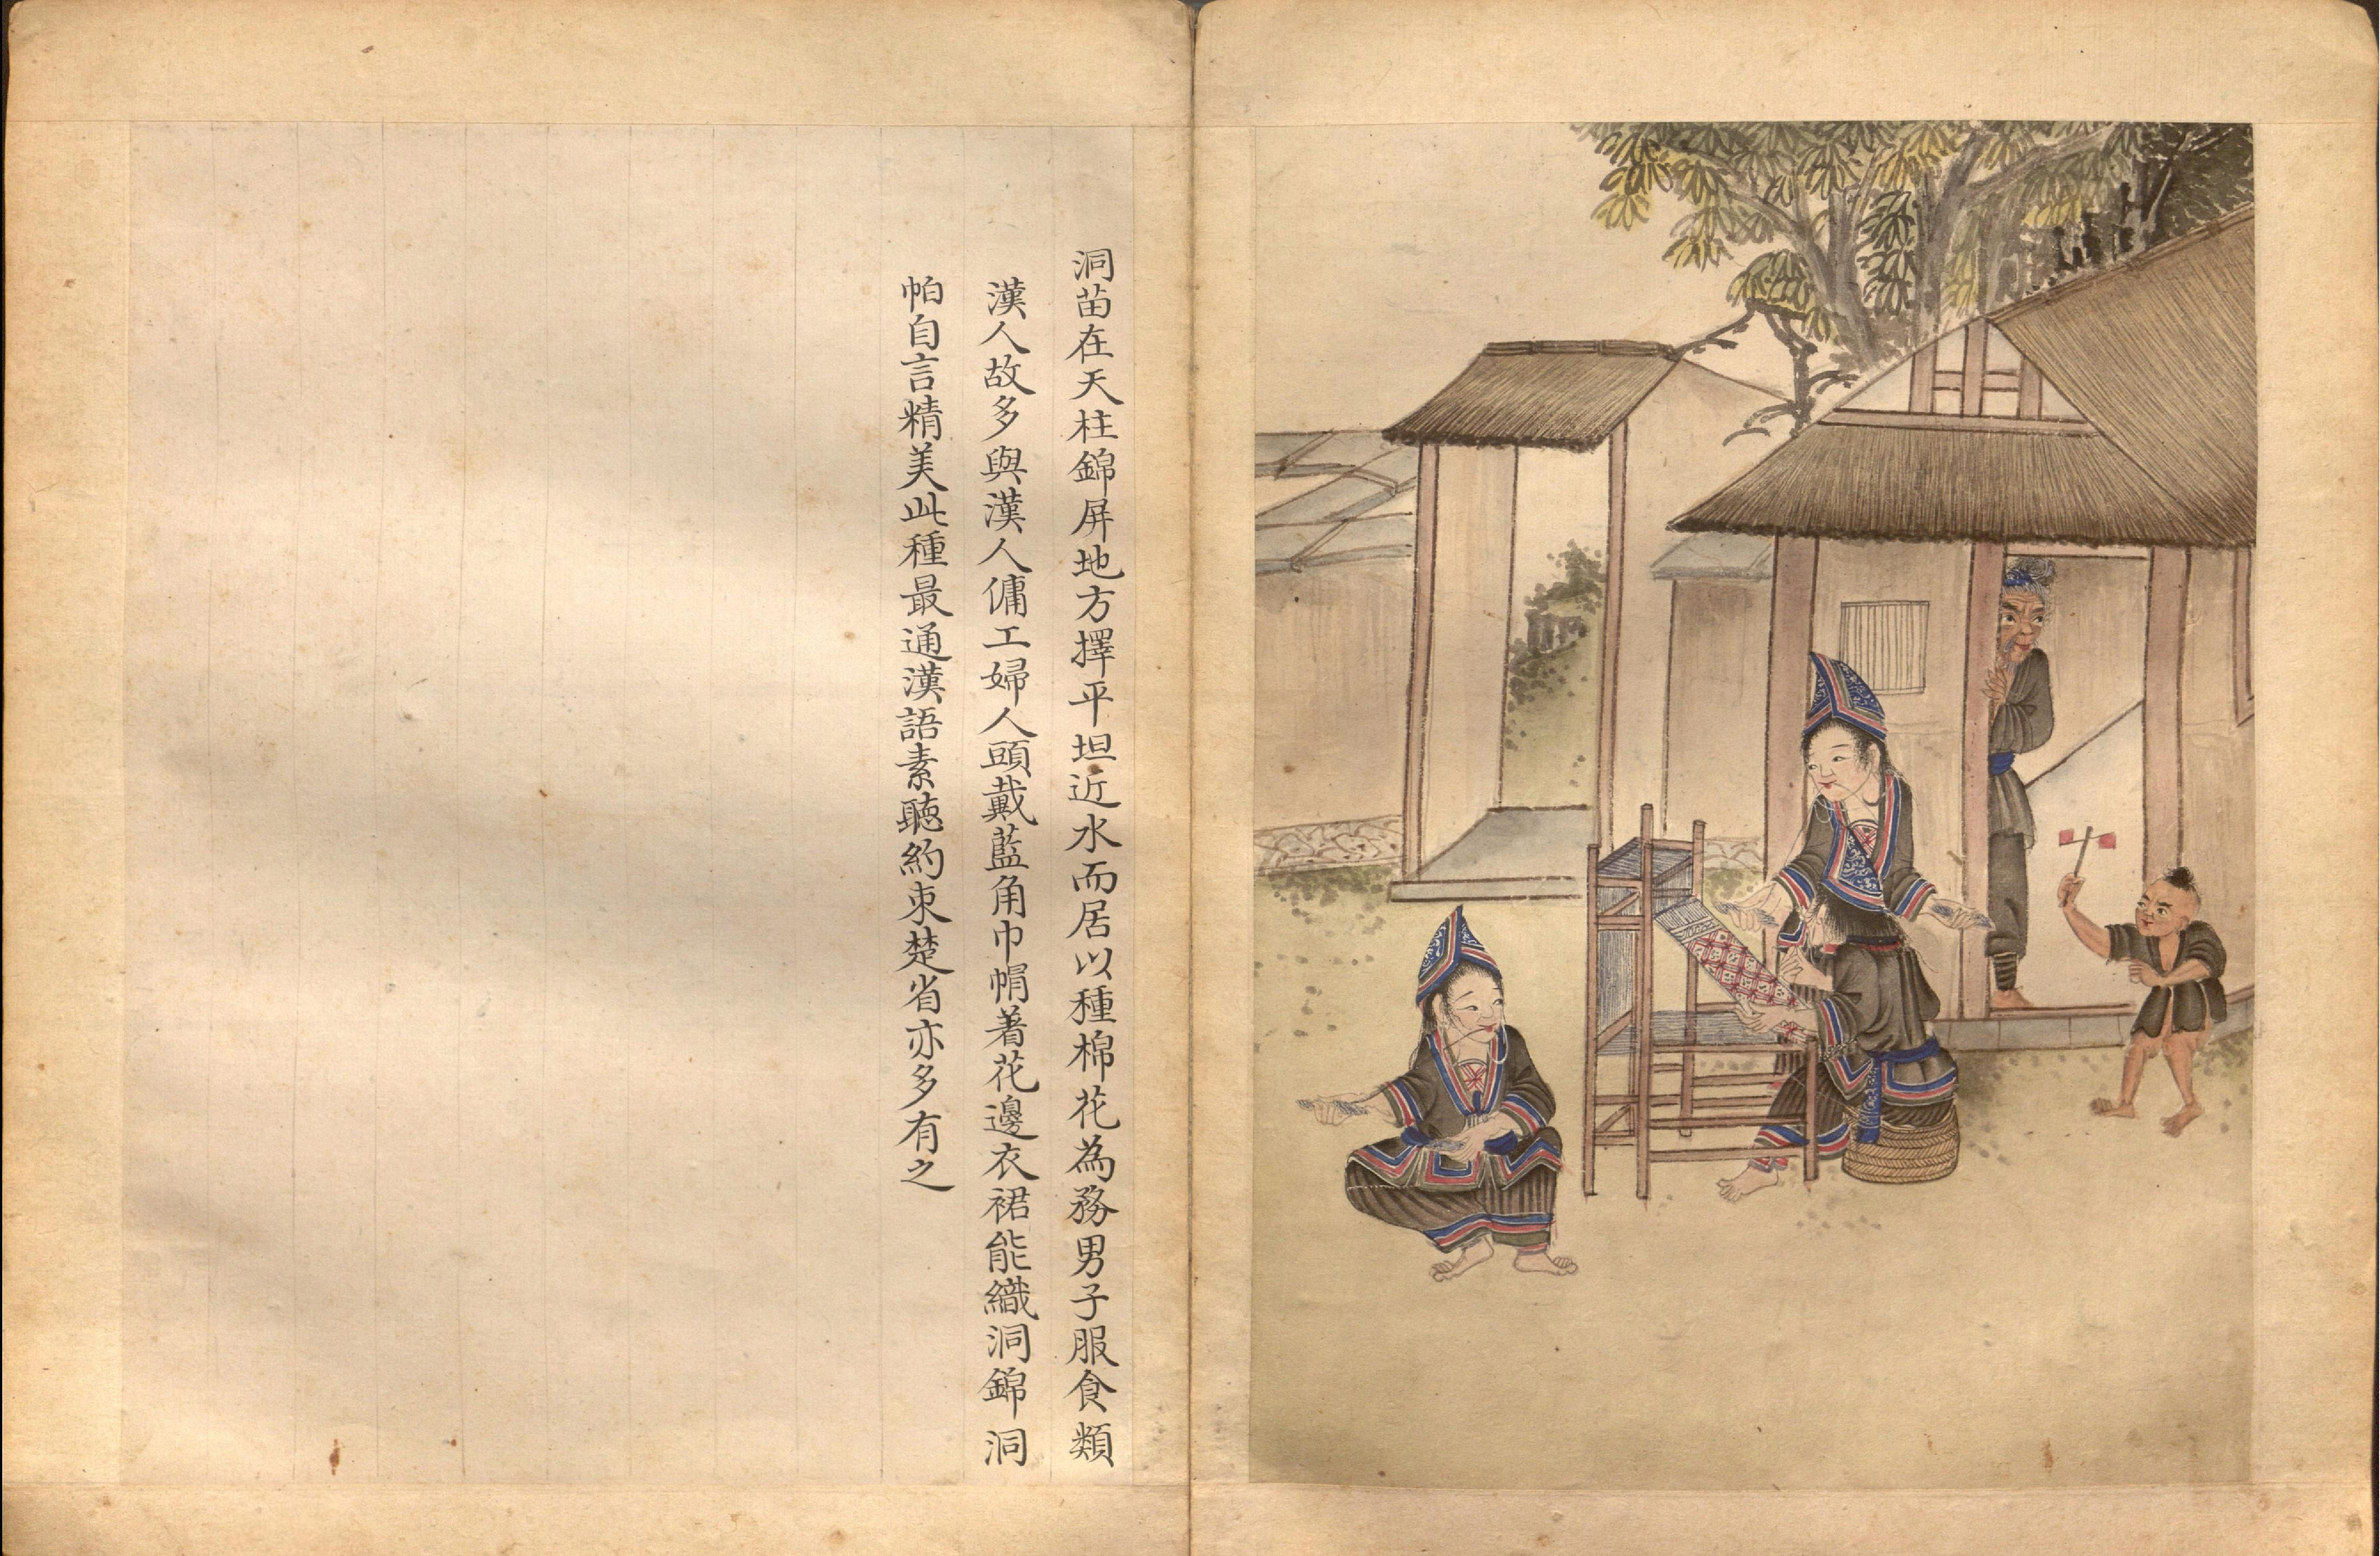 洞苗在天柱錦屏地方擇平坦近水而居以種棉花為務男子服食類
漢人故多與漢人傭工婦人頭戴藍角巾帽着花邊衣裙能織洞錦洞
帕自言精美此種最通漢語素聽約束楚省亦多有之